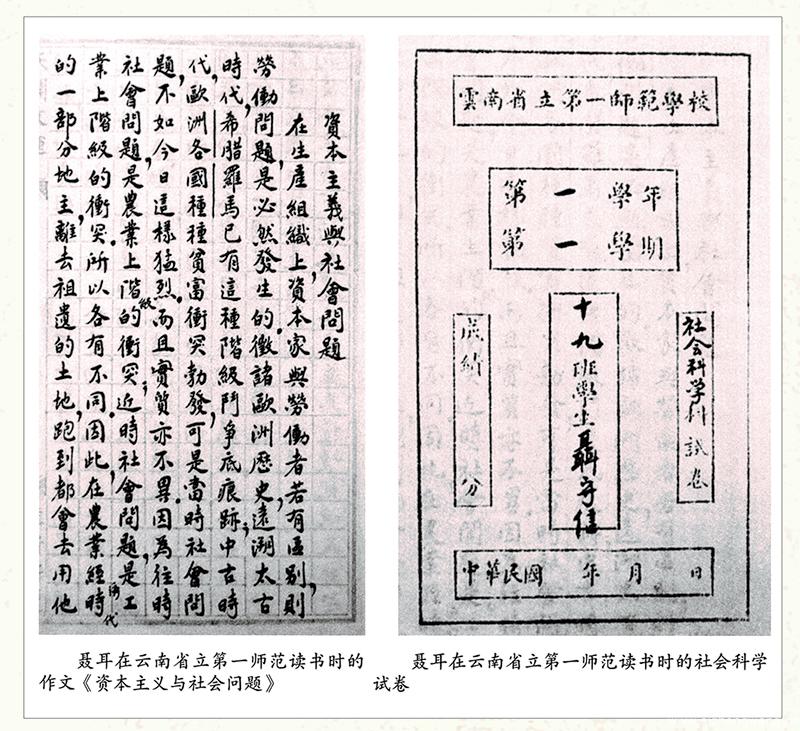 資本主義與社會問題
在生產組織上，資本家與勞働者若有區別，則
勞働問題，是必然發生的。徵諸歐洲歷史，遠溯太古
時代，希腊羅馬已有這種階級鬥爭底痕跡；中古時
代，歐洲各國種種貧富衝突勃發，可是當時社會問
題，不如今日這樣猛烈。而且實質亦不異。因為往時
社會問題，是農業上階級的衝突；近時社會問題，是工
業上階級的衝突。所以各有不同。因此，在農業經濟時代
的一部分地主，離去祖遺的土地，跑到都會去用他
雲南省立第一師範學校
第一學年
第一學期
社会科学科試卷
十九班學生聶守信
成績 分
中華民國 年 月 日
聂耳在云南省立第一师范读书时的
作文《资本主义与社会问题》
聂耳在云南省立第一师范读书时的社会科学
试卷